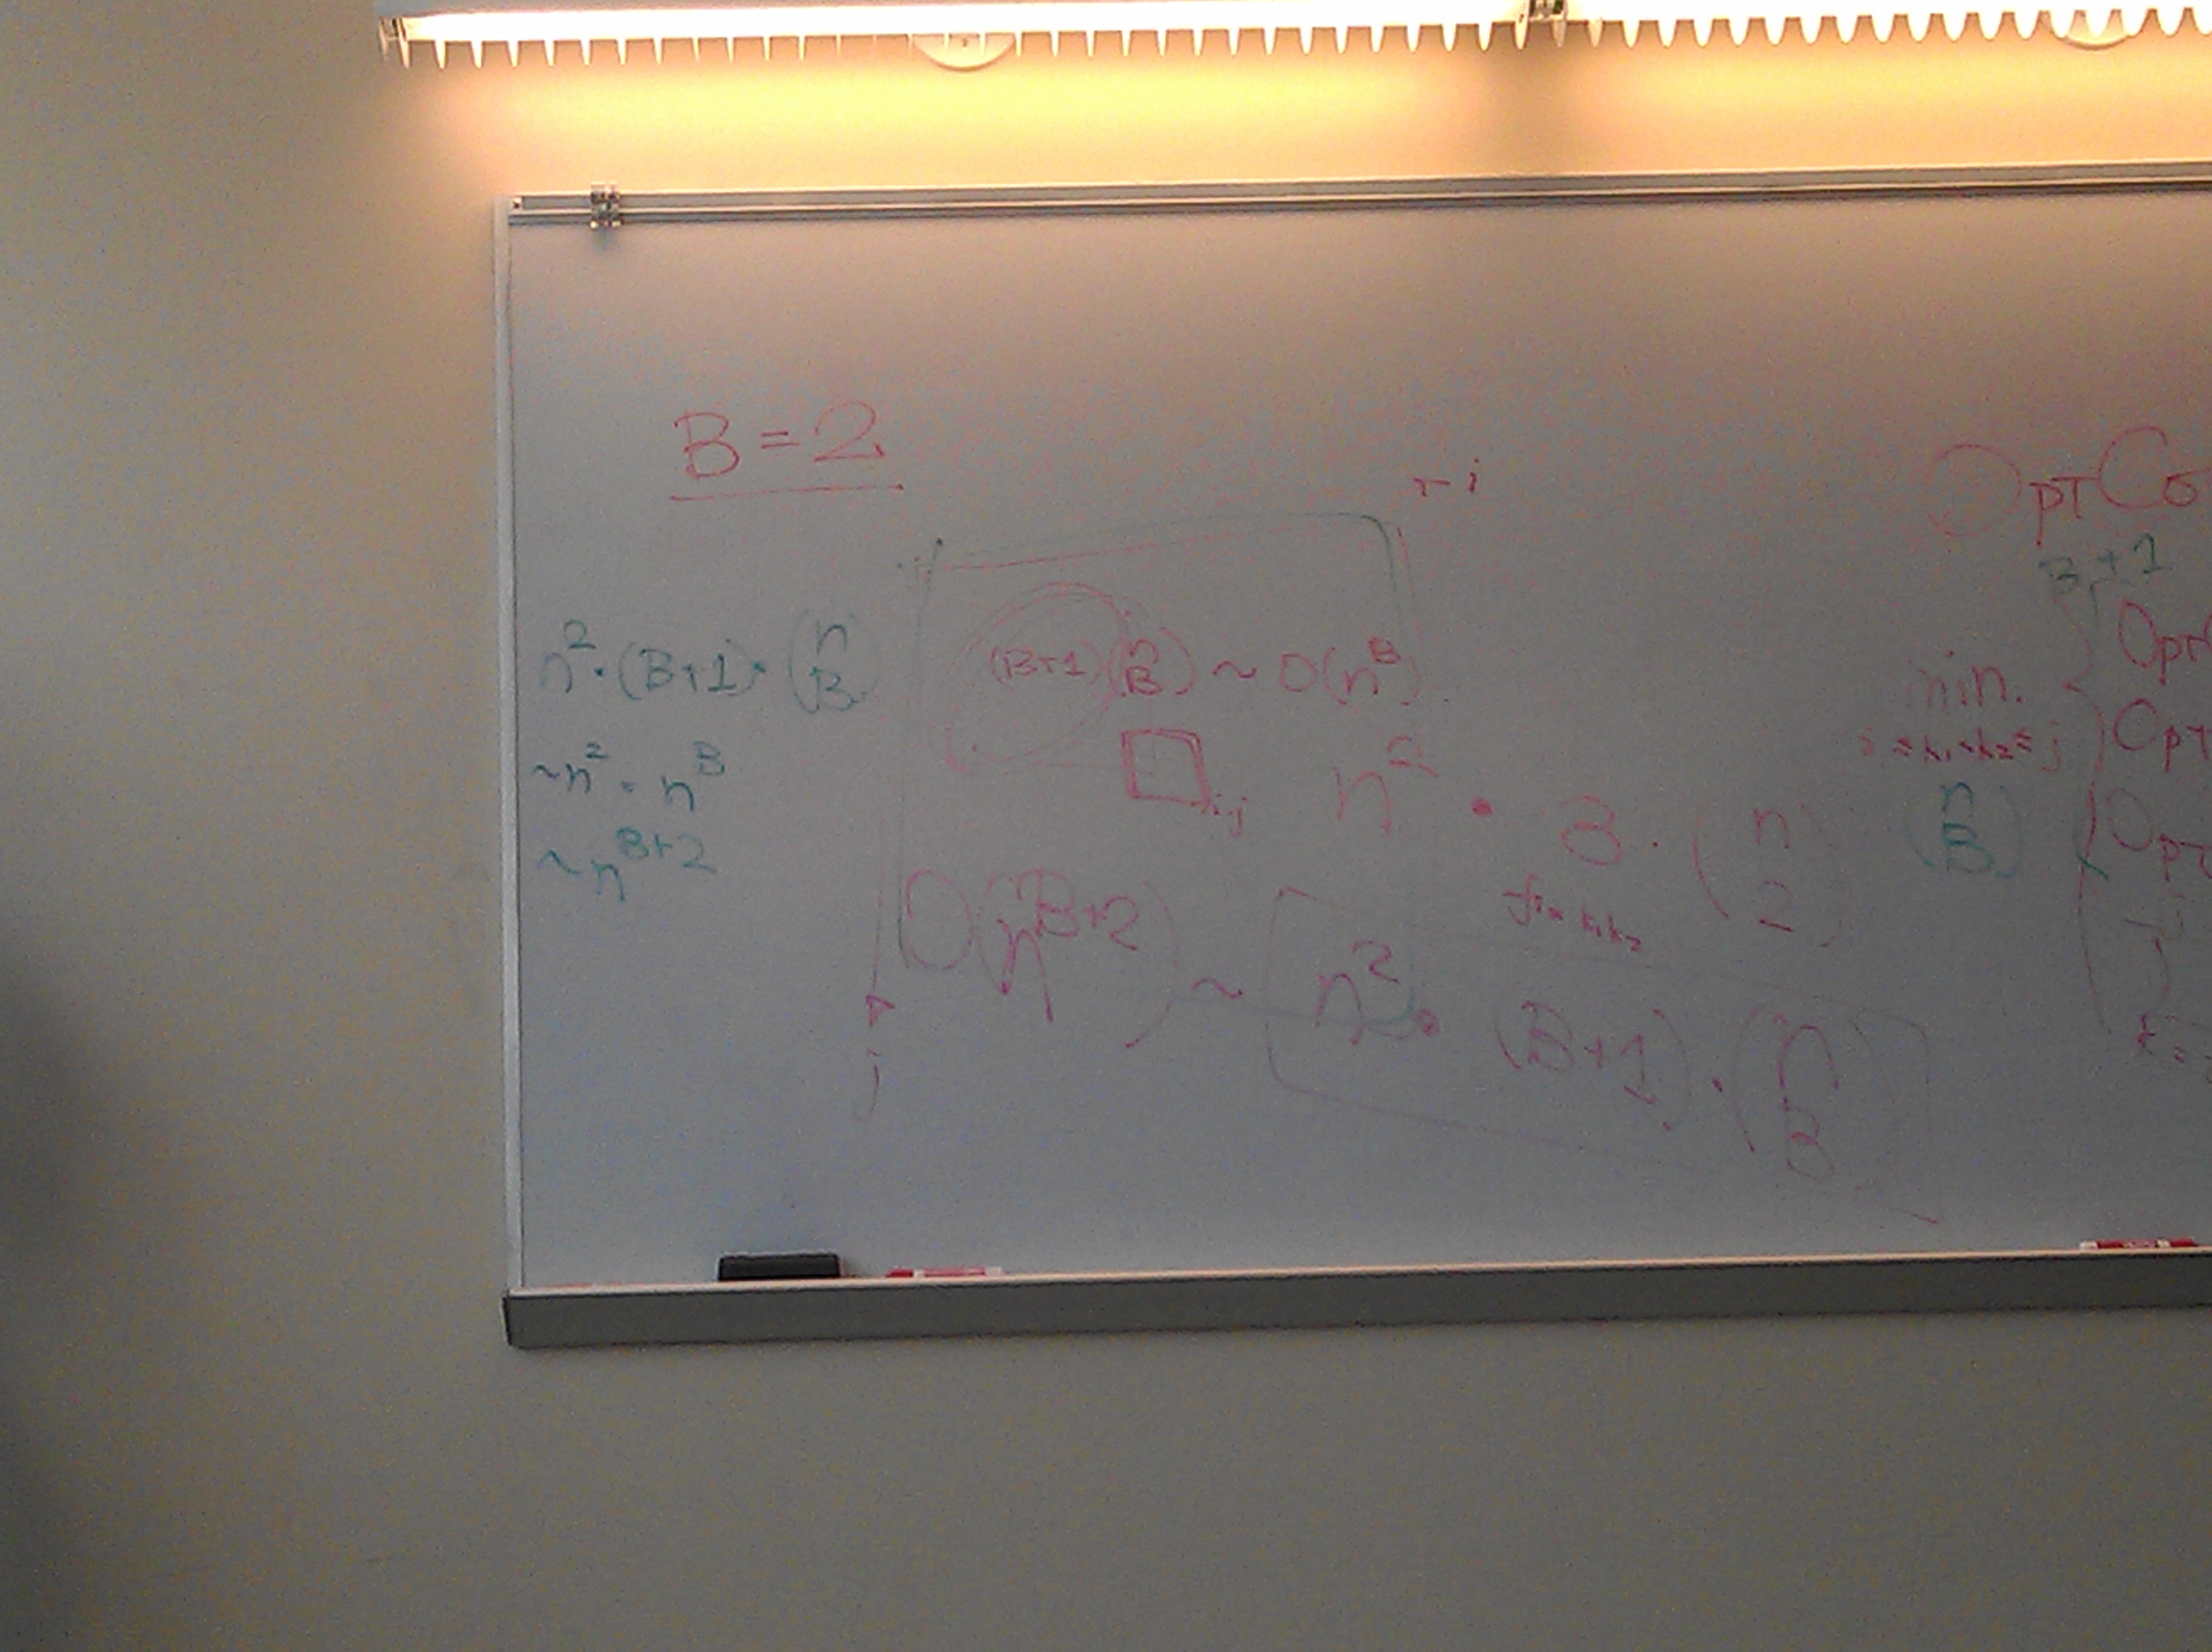 B = 2
i
n² · (B+1) · (n B)
~ n² · n^B
~ n^(B+2)
(B+1) (n B) ~ O(n^B)
i,j
n² · 3 · (n 2)
fix k₁k₂
O(n^(B+2)) ~ [n² · (B+1) · (n B)]
j
OptCo
B+1
min.
i ≤ k₁ < k₂ ≤ j
(n B)
Opt(
Opt
Opt
j